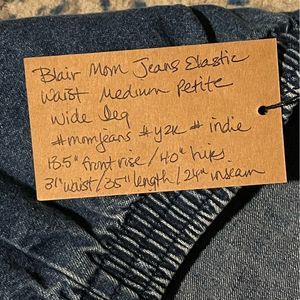 Blair Mom Jeans Elastic
Waist Medium Petite
Wide Leg
#momjeans #y2k # indie
13.5" front rise / 40" hips.
31" waist / 35" length / 24" inseam